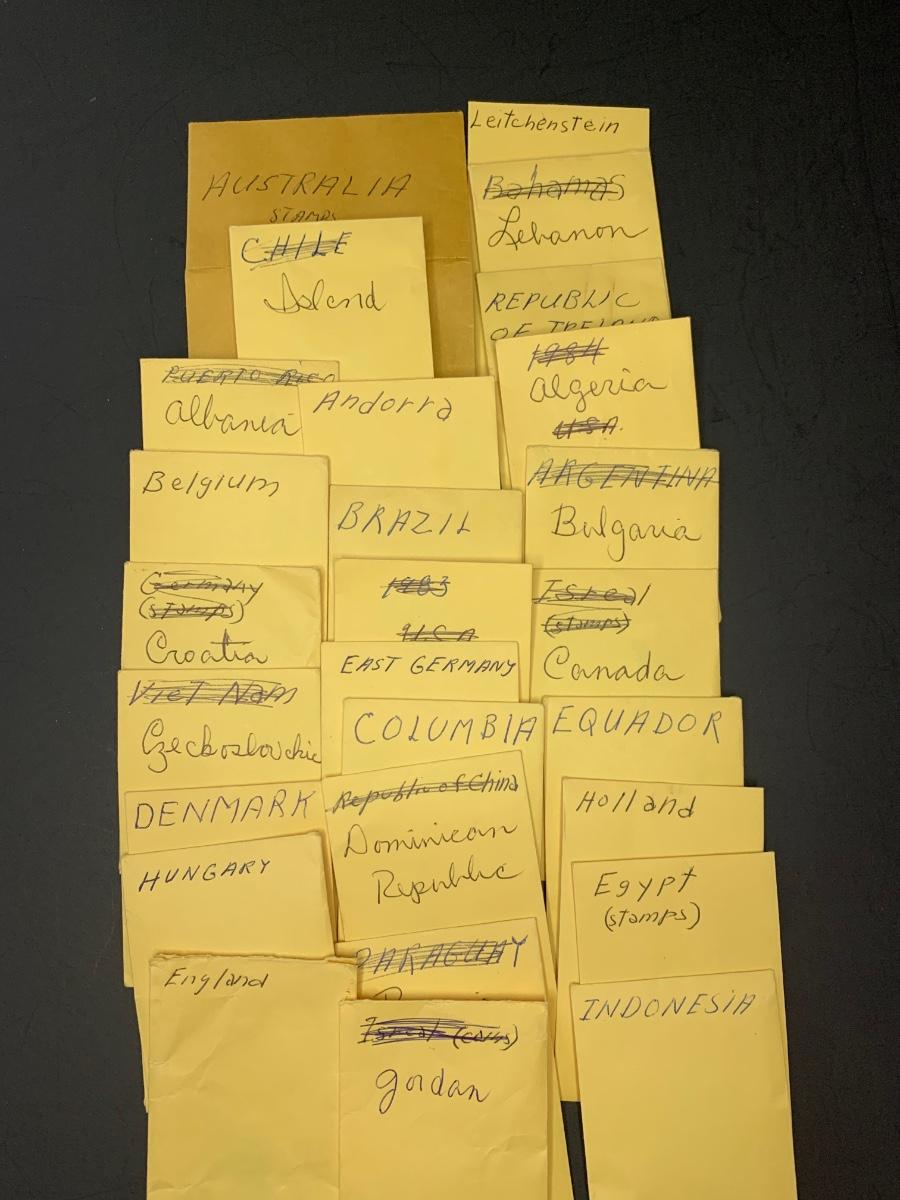 AUSTRALIA
STAMPS
Leitchenstein
Bahamas
Lebanon
CHILE
Island
REPUBLIC
OF IRELAND
1984
Algeria
USA.
PUERTO RICO
Albania
Andorra
Belgium
ARGENTINA
Bulgaria
BRAZIL
Germany
(stamps)
Croatia
1983
U.S.A
Isreal
(stamps)
Canada
EAST GERMANY
Viet Nam
Czeckoslovckie
COLUMBIA
EQUADOR
DENMARK
Republic of China
Dominican
Republic
Holland
HUNGARY
Egypt
(stamps)
PARAGUAY
England
INDONESIA
Isreal (coins)
Jordan